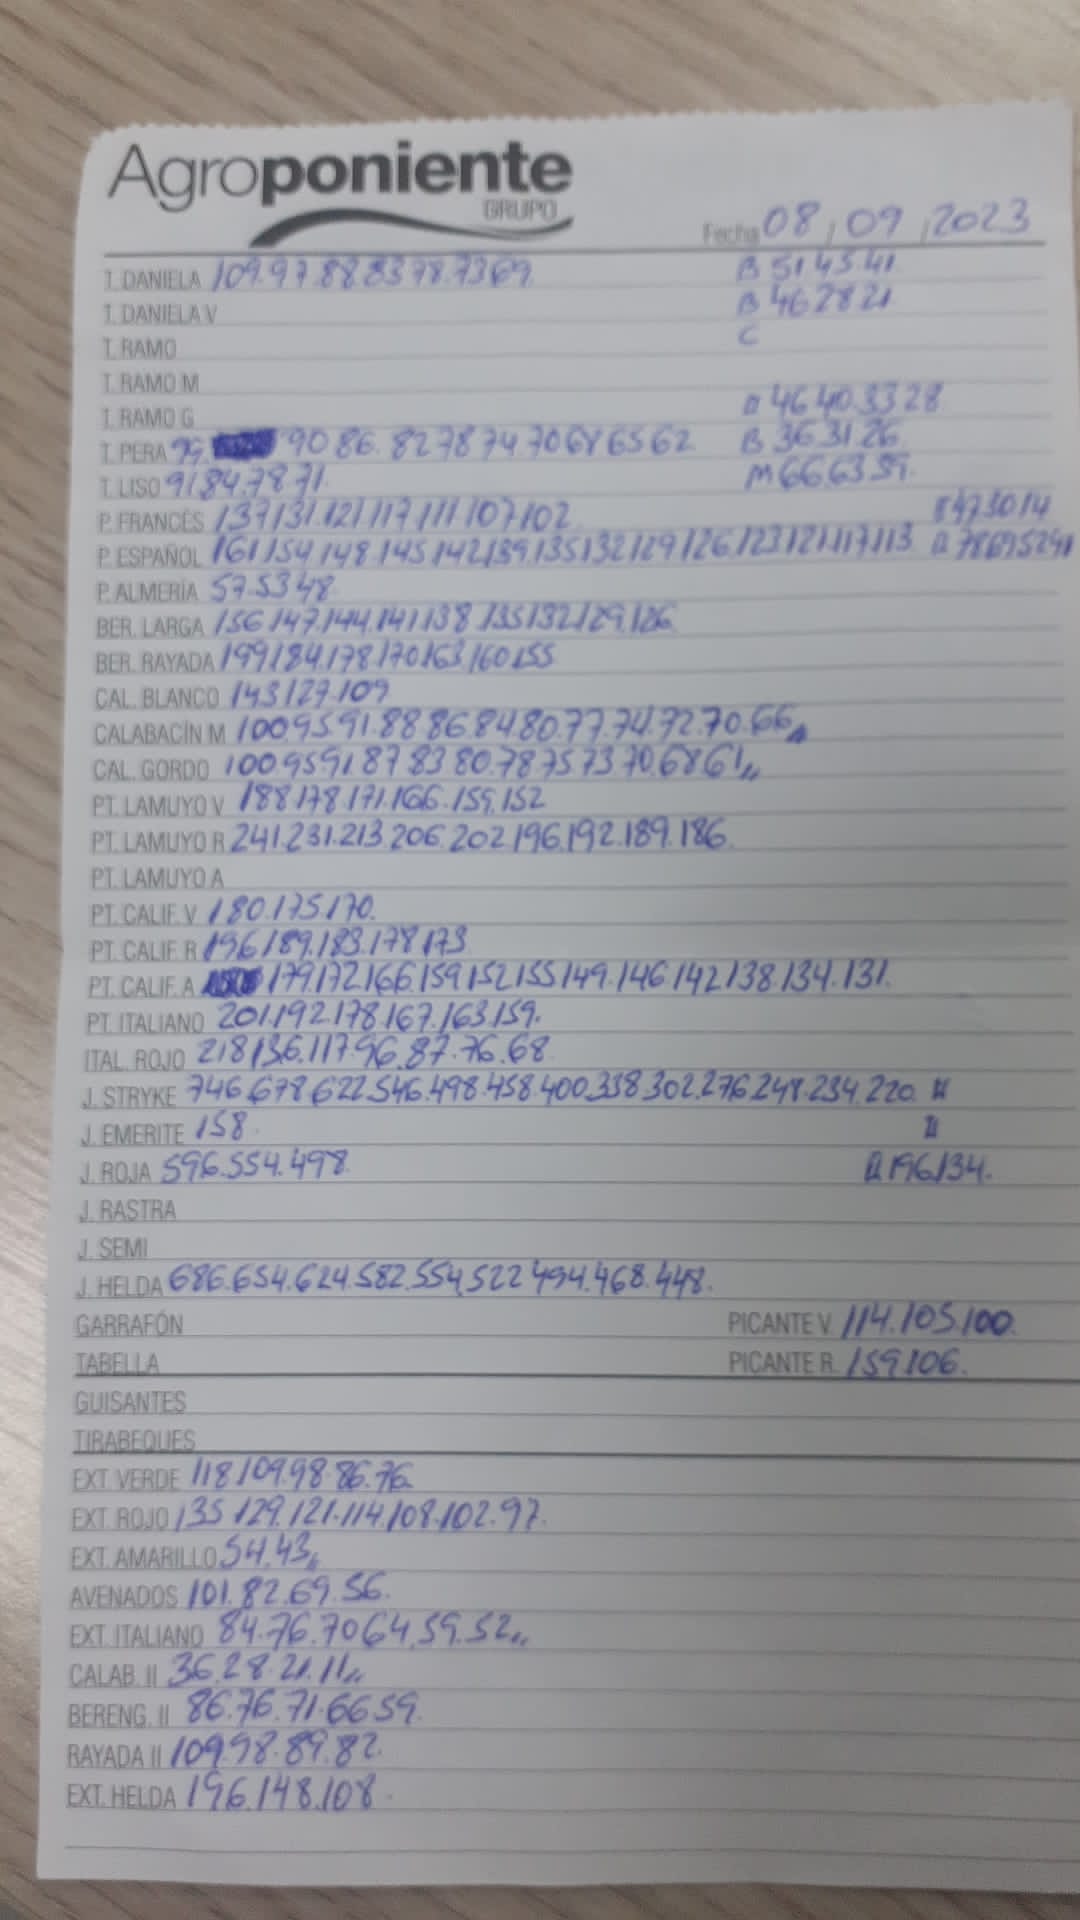 Agroponiente
GRUPO
Fecha 08/09/2023
T. DANIELA 109.97.88.83.78.73.69 B 51.45.41
T. DANIELA V B 46.28.21
T. RAMO C
T. RAMO M
T. RAMO G II 46.40.33.28
T. PERA 99. 90.86.82.78.74.70.68.65.62 B 36.31.26
T. LISO 91.84.78.71. M 66.63.59.
P. FRANCÉS 137.131.121.117.111.107.102 47.30.14
P. ESPAÑOL 161.154.148.145.142.139.135.132.129.126.123.121.117.113 II 78.69.52.41
P. ALMERÍA 57.53.48
BER. LARGA 156.147.144.141.138.135.132.129.126
BER. RAYADA 199.184.178.170.163.160.155
CAL. BLANCO 143.127.109
CALABACÍN M 100.95.91.88.86.84.80.77.74.72.70.66
CAL. GORDO 100.95.91.87.83.80.78.75.73.70.68.61,,
PT. LAMUYO V 188.178.171.166.159.152
PT. LAMUYO R 241.231.213.206.202.196.192.189.186.
PT. LAMUYO A
PT. CALIF. V 180.175.170.
PT. CALIF. R 196.189.183.178.173
PT. CALIF. A 179.172.166.159.152.155.149.146.142.138.134.131.
PT. ITALIANO 201.192.178.167.163.159.
ITAL. ROJO 218.136.117.96.87.76.68
J. STRYKE 746.678.622.546.498.458.400.338.302.276.248.234.220. II
J. EMERITE 158. II
J. ROJA 596.554.498 II 196.134.
J. RASTRA
J. SEMI
J. HELDA 686.654.624.582.554.522.494.468.448.
GARRAFÓN PICANTE V. 114.105.100.
TABELLA PICANTE R. 159.106.
GUISANTES
TIRABEQUES
EXT. VERDE 118.109.98.86.76.
EXT. ROJO 135.129.121.114.108.102.97.
EXT. AMARILLO 54.43,,
AVENADOS 101.82.69.56.
EXT. ITALIANO 84.76.70.64.59.52,,
CALAB. II 36.28.21.11,,
BERENG. II 86.76.71.66.59.
RAYADA II 109.98.89.82.
EXT. HELDA 196.148.108.